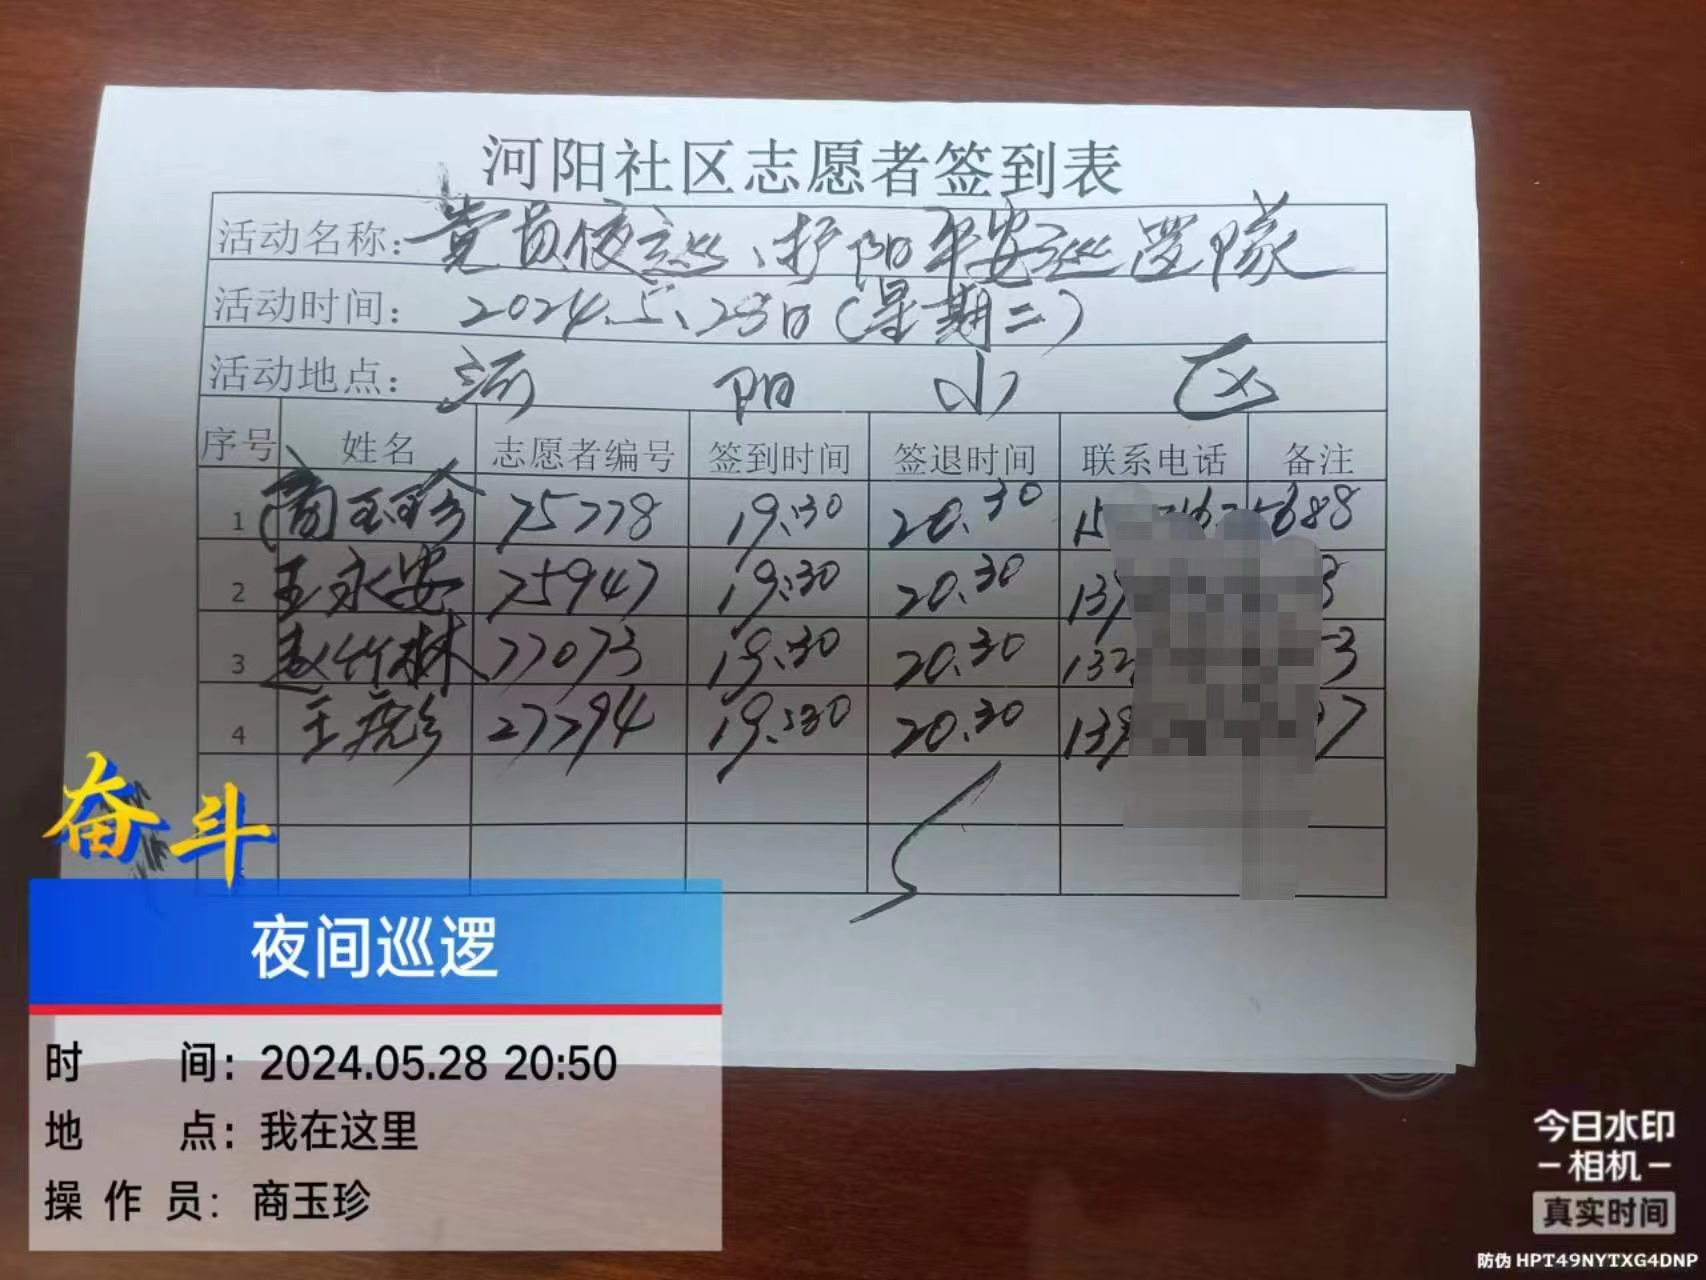 河阳社区志愿者签到表
活动名称：党员夜巡、护阳平安巡逻隊
活动时间：2024.5.28日(星期二)
活动地点：河 阳 小 区
序号 姓名 志愿者编号 签到时间 签退时间 联系电话 备注
1 商玉珍 75778 19:30 20.30 15 5688
2 王永安 75947 19:30 20.30 139 3
3 赵竹林 77073 19:30 20.30 132 53
4 王 27294 19:30 20.30 139 7
奋斗
夜间巡逻
时 间：2024.05.28 20:50
地 点：我在这里
操作员：商玉珍
今日水印
-相机-
真实时间
防伪 HPT49NYTXG4DNP